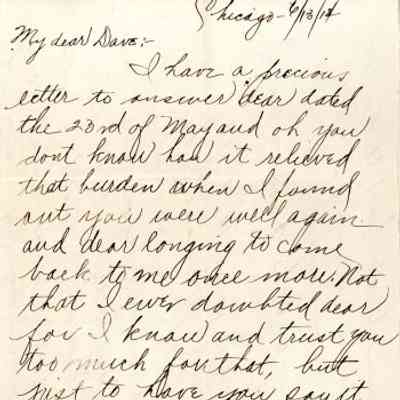 Chicago - 6/13/14
My dear Dave:-
I have a precious
letter to answer dear dated
the 23rd of May and oh you
dont know how it relieved
that burden when I found
out you were well again
and dear longing to come
back to me once more. Not
that I ever doubted dear
for I know and trust you
too much for that, but
just to have you say it